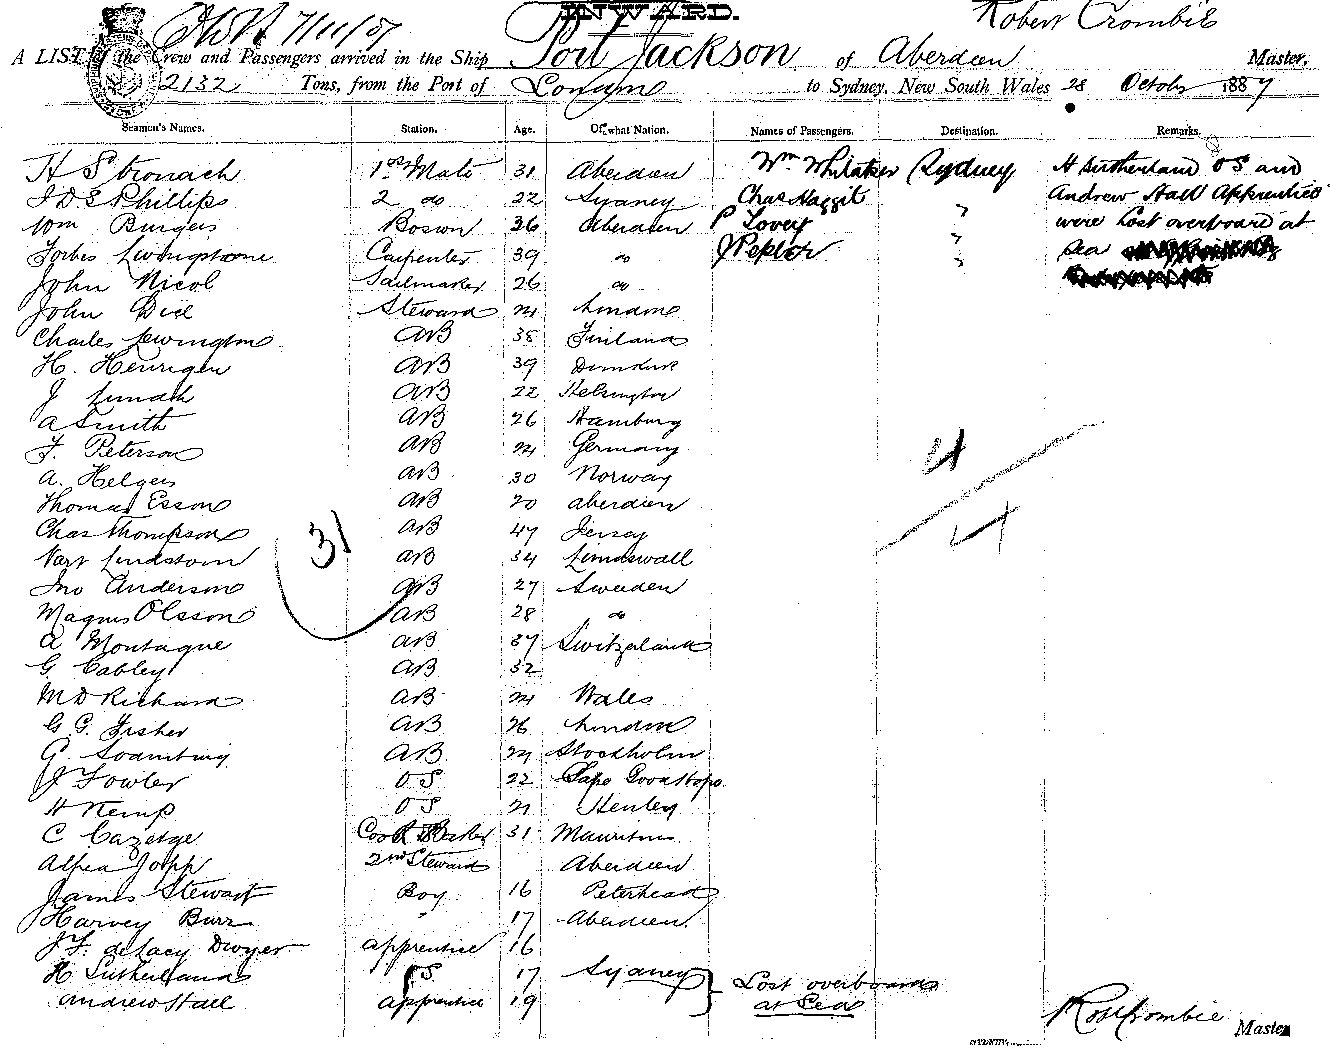 INWARD.
Robert Crombie
7/11/87
A LIST of the Crew and Passengers arrived in the Ship Port Jackson of Aberdeen Master,
2132 Tons, from the Port of London to Sydney, New South Wales 28 October 1887
Seamen's Names. Station. Age. Of what Nation. Names of Passengers. Destination. Remarks.
H Stronach 1st Mate 31 Aberdeen Wm Whitaker Sydney H Sutherland OS and
J D S Phillips 2 do 22 Sydney Chas Naggit " Andrew Hall Apprentice
Wm Burgess Boson 36 Aberdeen P Lovey " were Lost overboard at
Forbes Livingstone Carpenter 39 do J Peplor " sea
John Nicol Sailmaker 26 do
John Dick Steward 21 London
Charles Lewington AB 38 Finland
H. Henrigen AB 39 Dunkirk
J Lundh AB 22 Helsington
A Smith AB 26 Hamburg
F. Peterson AB 21 Germany
A. Helgers AB 30 Norway
Thomas Esson AB 20 Aberdeen
Chas Thompson AB 47 Jersey
Lindstown AB 34
Jno Anderson AB 27 Sweden
Magnus Olsson AB 28 do
A Montague AB 37 Switzerland
G. Cabley AB 32
M D Richard AB 21 Wales
G G. Fisher AB 26 London
G. AB 29 Stockholm
J Fowler OS 22 Cape Good Hope
H Kemp OS 21 Henley
C Cazedge Cook & Baker 31 Mauritius
Alfred Jopp 2nd Steward Aberdeen
James Stewart Boy 16 Peterhead
Harvey Burr " 17 Aberdeen
J. F. deLacy Dwyer apprentice 16
H Sutherland OS 17 Sydney } Lost overboard
Andrew Hall apprentice 19 at Sea
31
4
Robt Crombie Master